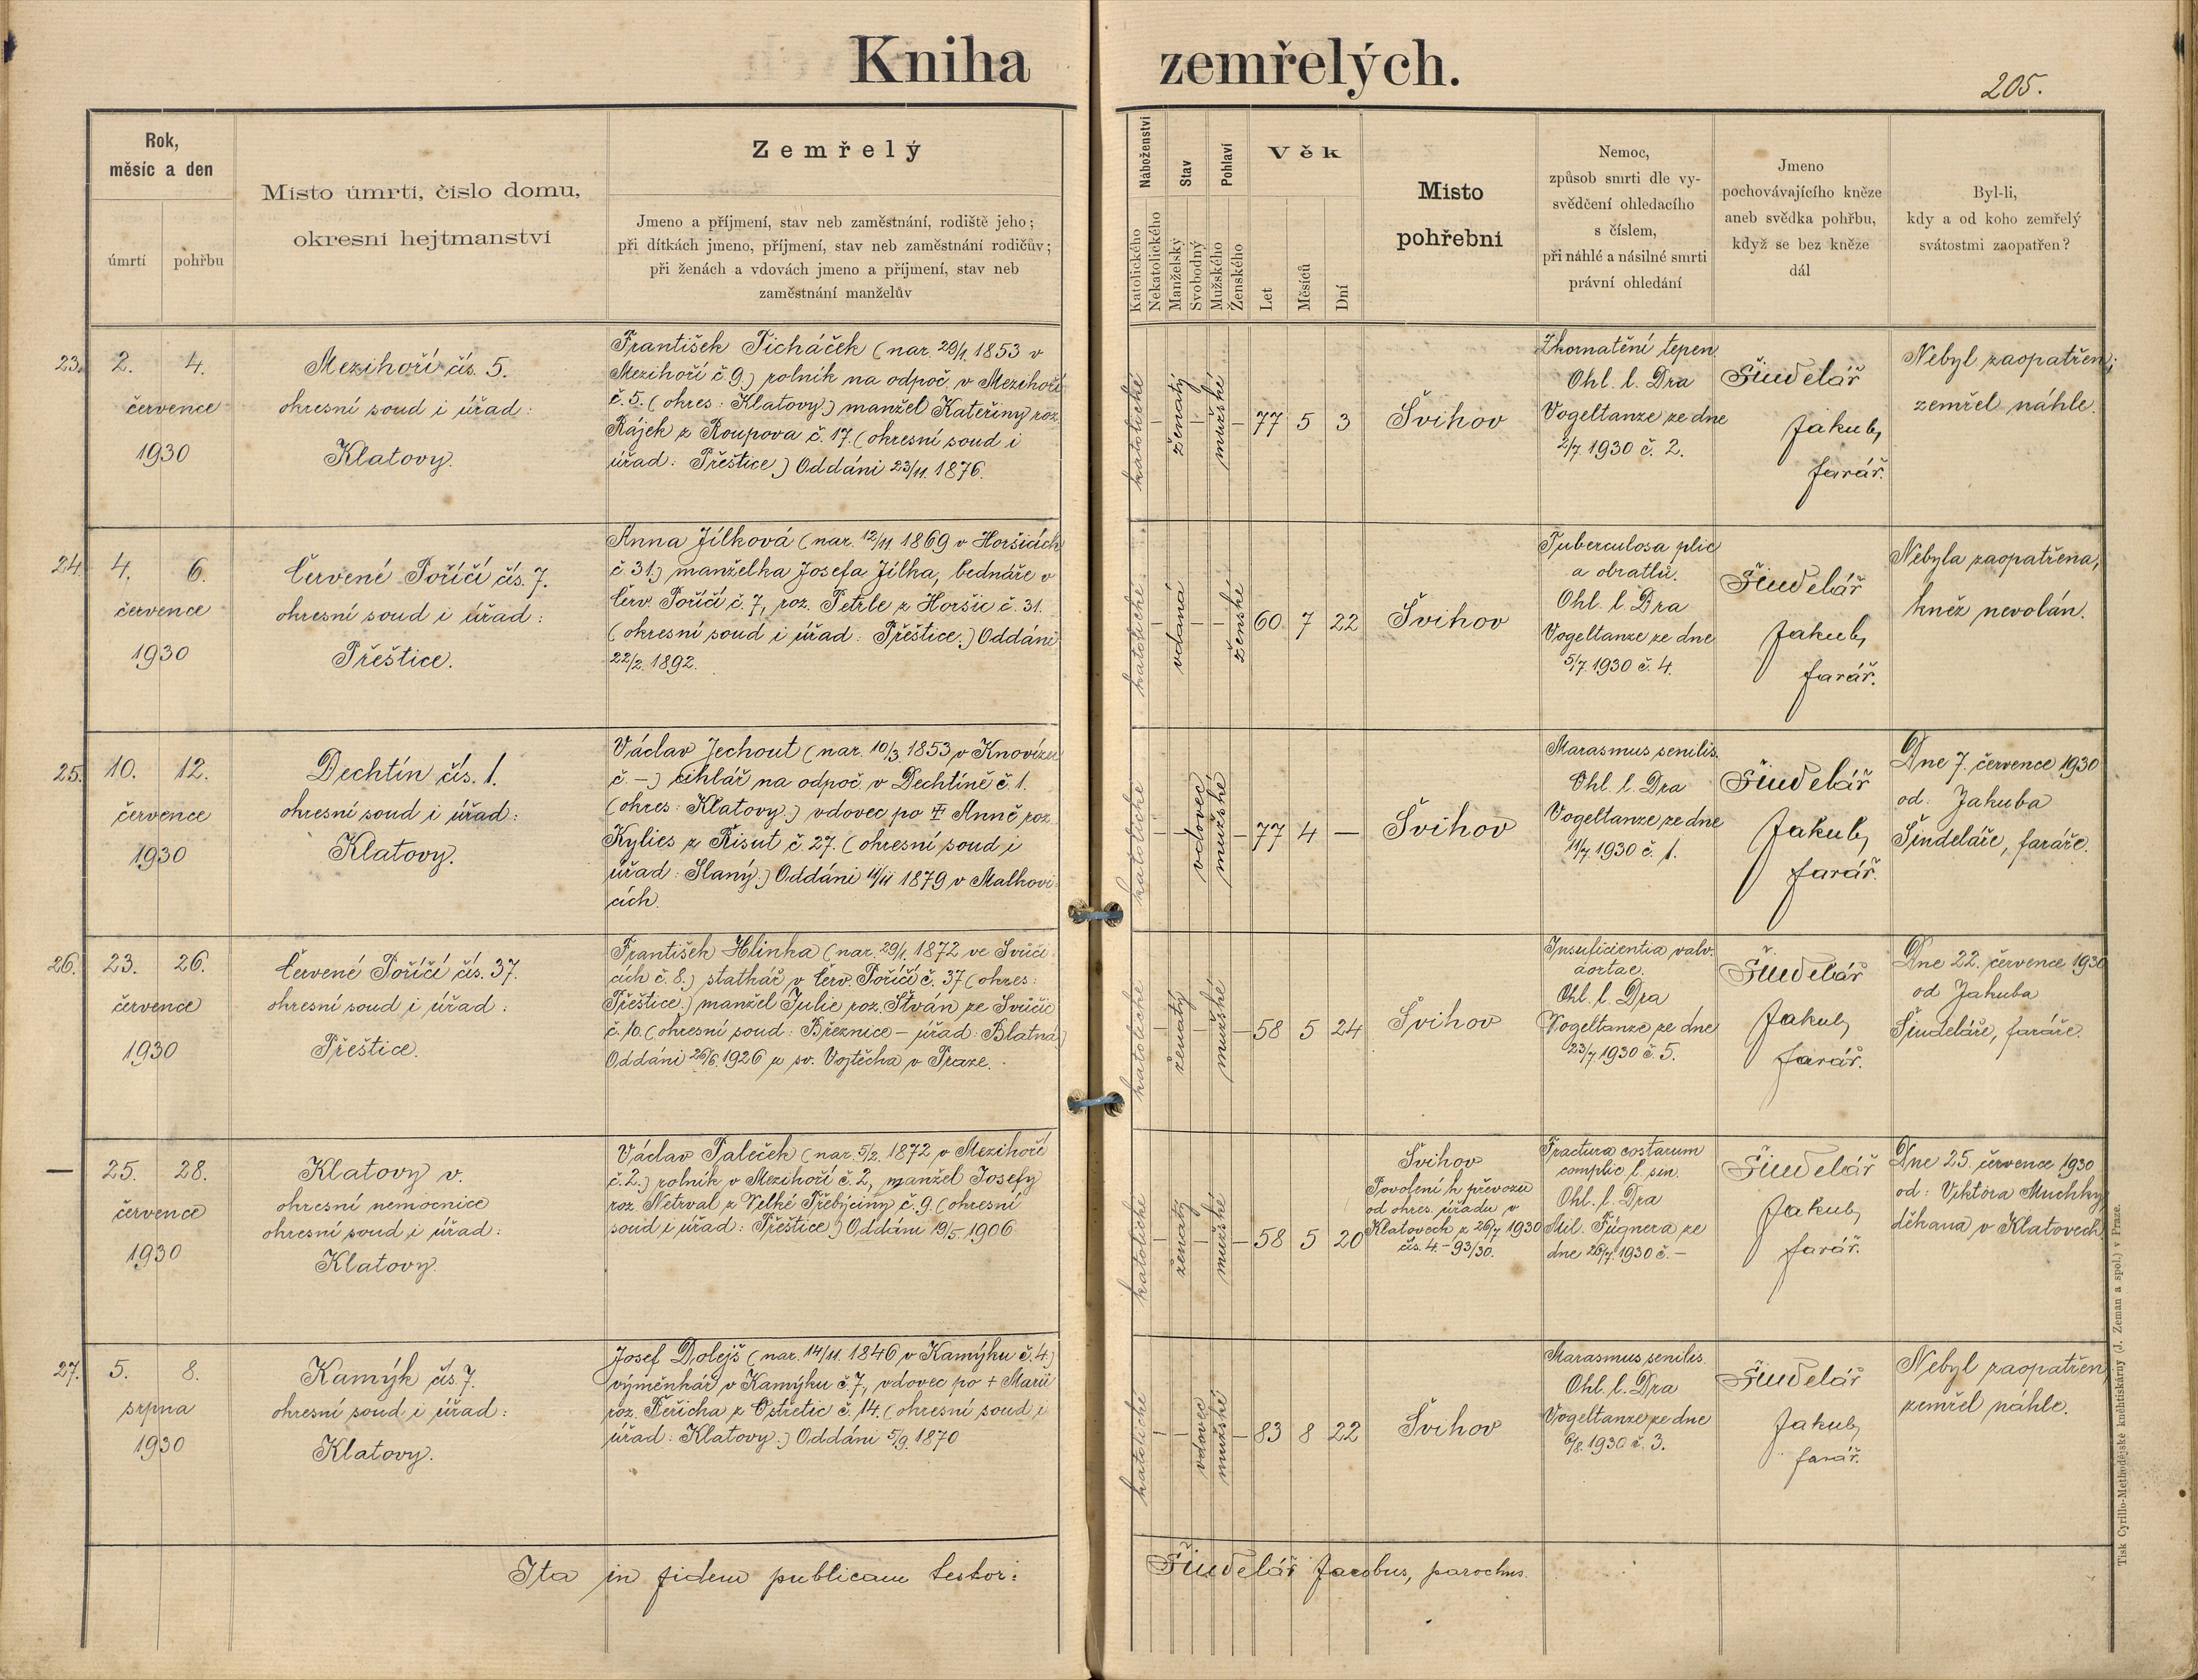 Kniha zemřelých.
205.
Rok,
měsíc a den
úmrtí
pohřbu
Místo úmrtí, číslo domu,
okresní hejtmanství
Zemřelý
Jmeno a příjmení, stav neb zaměstnání, rodiště jeho;
při dítkách jmeno, příjmení, stav neb zaměstnání rodičův;
při ženách a vdovách jmeno a příjmení, stav neb
zaměstnání manželův
Náboženství
Katolického
Nekatolického
Stav
Manželský
Svobodný
Pohlaví
Mužského
Ženského
Věk
Let
Měsíců
Dní
Místo
pohřební
Nemoc,
způsob smrti dle vy-
svědčení ohledacího
s číslem,
při náhlé a násilné smrti
právní ohledání
Jmeno
pochovávajícího kněze
aneb svědka pohřbu,
když se bez kněze
dál
Byl-li,
kdy a od koho zemřelý
svátostmi zaopatřen?
23.
2. 4.
července
1930
Mezihoří čís. 5.
okresní soud i úřad:
Klatovy.
František Ticháček (nar. 29/1. 1853 v
Mezihoří č. 9.) rolník na odpoč. v Mezihoří
č. 5. (okres: Klatovy.) manžel Kateřiny roz.
Rájek z Roupova č. 17. (okresní soud i
úřad: Přeštice.) Oddáni 23/11. 1876.
katolické
ženatý
mužské
77 5 3
Švihov
Zkornatění tepen
Ohl. l. Dra
Vogeltanze ze dne
2/7. 1930 č. 2.
Šindelář
Jakub,
farář.
Nebyl zaopatřen;
zemřel náhle.
24.
4. 6.
července
1930
Červené Poříčí čís. 7.
okresní soud i úřad:
Přeštice.
Anna Jílková (nar. 12/11 1869 v Horšicích
č. 31.) manželka Josefa Jílka, bednáře v
Červ. Poříčí č. 7, roz. Petrle z Horšic č. 31.
(okresní soud i úřad: Přeštice.) Oddáni
22/2. 1892.
katolické
vdaná
ženské
60 7 22
Švihov
Tuberculosa plic
a obratlů.
Ohl. l. Dra
Vogeltanze ze dne
5/7. 1930 č. 4.
Šindelář
Jakub,
farář.
Nebyla zaopatřena,
kněz nevolán.
25.
10. 12.
července
1930
Dechtín čís. 1.
okresní soud i úřad:
Klatovy.
Václav Jechout (nar. 10/3. 1853 v Knovízi
č. –) cihlář na odpoč. v Dechtíně č. 1.
(okres: Klatovy.) vdovec po † Anně roz.
Kylies z Řisut č. 27. (okresní soud i
úřad: Slaný.) Oddáni 11/11 1879 v Malkovi-
cích.
katolické
vdovec
mužské
77 4 –
Švihov
Marasmus senilis.
Ohl. l. Dra
Vogeltanze ze dne
11/7. 1930 č. 1.
Šindelář
Jakub,
farář.
Dne 7. července 1930
od: Jakuba
Šindeláře, faráře.
26.
23. 26.
července
1930
Červené Poříčí čís. 37.
okresní soud i úřad:
Přeštice.
František Hlinka (nar. 29/1. 1872 ve Svůči-
cích č. 8.) statkář v Červ. Poříčí č. 37 (okres:
Přeštice.) manžel Julie roz. Štván ze Svůčic
č. 10. (okresní soud: Březnice – úřad: Blatná)
Oddáni 26/6. 1926 u sv. Vojtěcha v Praze.
katolické
ženatý
mužské
58 5 24
Švihov
Insuficientia valv.
aortae.
Ohl. l. Dra
Vogeltanze ze dne
23/7. 1930 č. 5.
Šindelář
Jakub,
farář.
Dne 22. července 1930
od Jakuba
Šindeláře, faráře.
—
25. 28.
července
1930
Klatovy v.
okresní nemocnice
okresní soud i úřad:
Klatovy.
Václav Paleček (nar. 5/2. 1872 v Mezihoří
č. 2.) rolník v Mezihoří č. 2, manžel Josefy
roz. Netrval z Velké Třebýciny č. 9. (okresní
soud i úřad: Přeštice.) Oddáni 19/5. 1906
katolické
ženatý
mužské
58 5 20
Švihov
Povolení k převozu
od okres. úřadu v
Klatovech z 26/7 1930
čís. 4.–93/30.
Fractura costarum
complic. l. sin.
Ohl. l. Dra
Mil. Fügnera ze
dne 26/7. 1930 č. –
Šindelář
Jakub,
farář.
Dne 25. července 1930
od: Viktora Muchky,
děkana v Klatovech.
27.
5. 8.
srpna
1930
Kamýk čís. 7.
okresní soud i úřad:
Klatovy.
Josef Dolejš (nar. 14/11. 1846 v Kamýku č. 4.)
výměnkář v Kamýku č. 7, vdovec po † Marii
roz. Peřicha z Ostřetic č. 14. (okresní soud i
úřad: Klatovy.) Oddáni 5/9. 1870
katolické
vdovec
mužské
83 8 22
Švihov
Marasmus senilis.
Ohl. l. Dra
Vogeltanze ze dne
6/8. 1930 č. 3.
Šindelář
Jakub,
farář.
Nebyl zaopatřen,
zemřel náhle.
Ita in fidem publicam testor: Šindelář Jacobus, parochus.
Tisk Cyrillo-Methodějské kněhtiskárny (J. Zeman a spol.) v Praze.